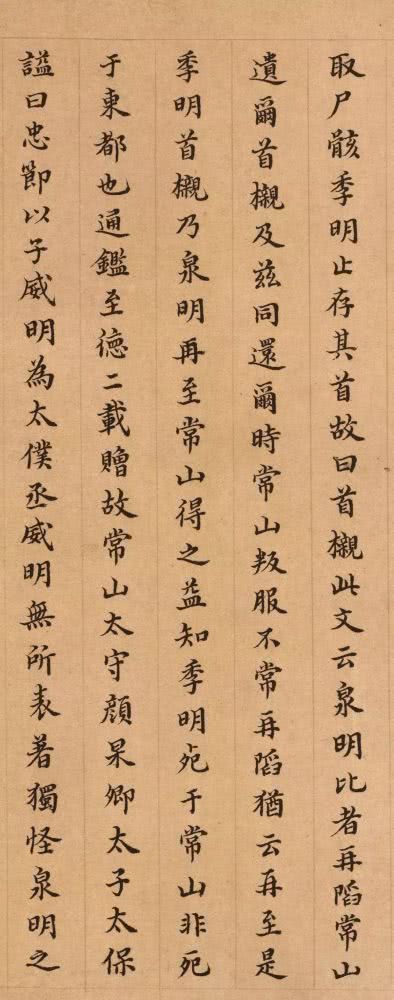 取尸骸季明止存其首故曰首櫬此文云泉明比者再陷常山
遺爾首櫬及茲同還爾時常山叛服不常再陷猶云再至是
季明首櫬乃泉明再至常山得之益知季明死于常山非死
于東都也通鑑至德二載贈故常山太守顔杲卿太子太保
謚曰忠節以子威明為太僕丞威明無所表著獨怪泉明之